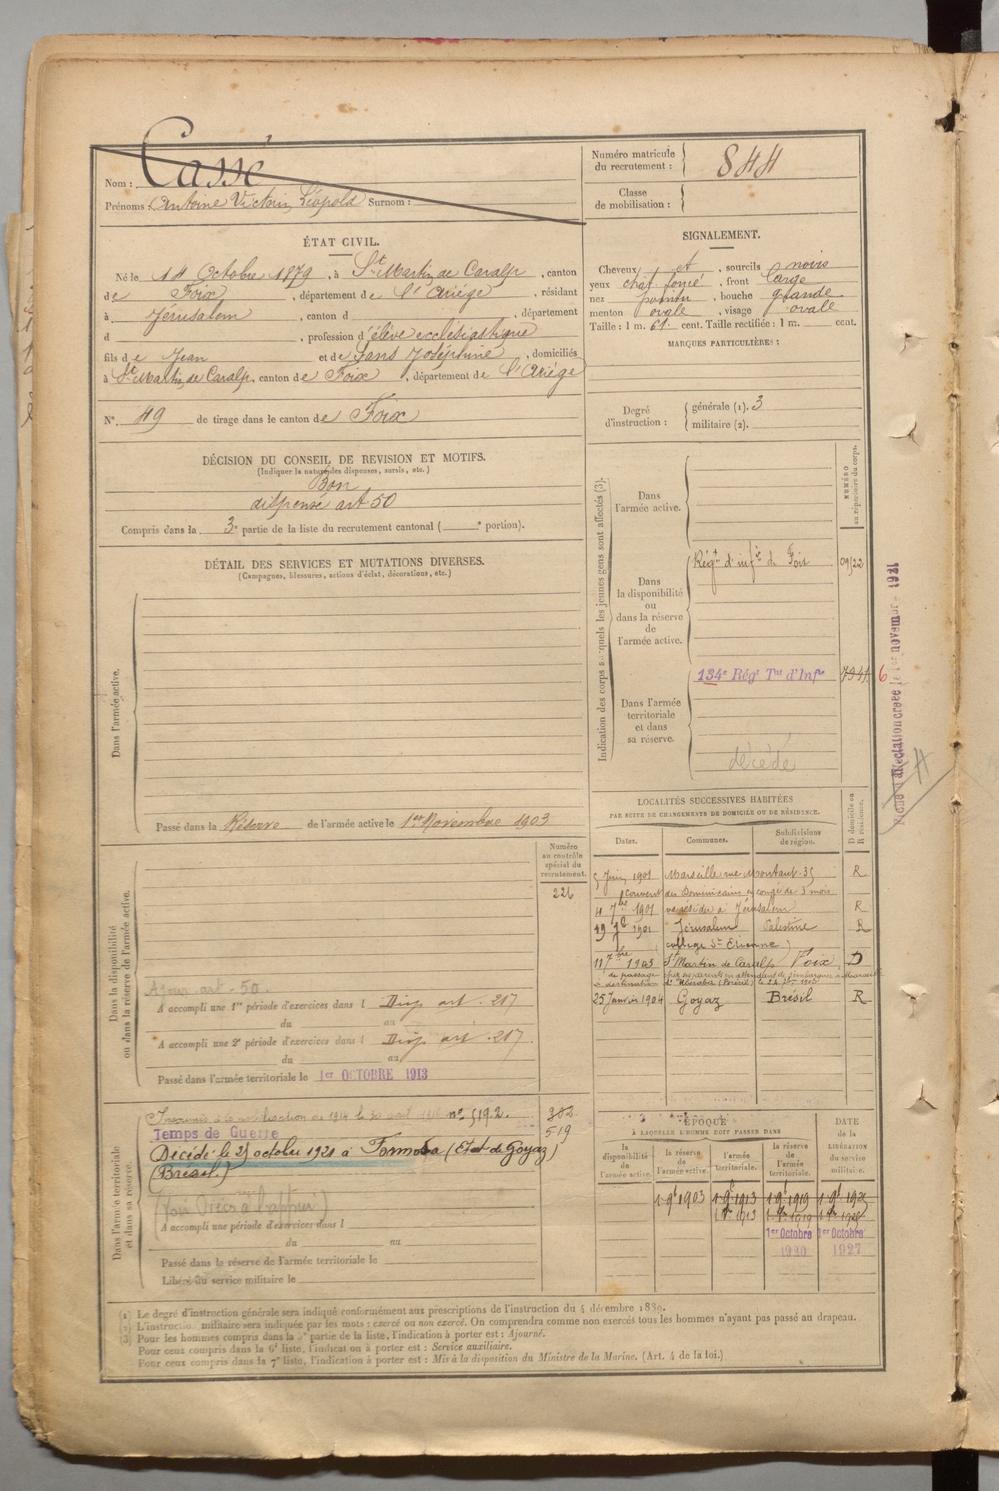 Nom : Cassé
Prénoms : Antoine Victorin Léopold Surnom :
Numéro matricule du recrutement : 844
Classe de mobilisation :
ÉTAT CIVIL.
Né le 14 Octobre 1879, à St Martin de Caralp, canton
de Foix, département de l'Ariège, résidant
à Jérusalem, canton d , département
d , profession d'élève ecclésiastique
fils de Jean et de Sans Joséphine, domiciliés
à St Martin de Caralp, canton de Foix, département de l'Ariège
N° 49 de tirage dans le canton de Foix
SIGNALEMENT.
Cheveux et , sourcils noirs
yeux chat foncé, front large
nez pointu, bouche grande
menton ovale, visage ovale
Taille : 1 m. 61 cent. Taille rectifiée : 1 m. cent.
MARQUES PARTICULIÈRES :
Degré d'instruction : générale (1). 3
militaire (2).
DÉCISION DU CONSEIL DE REVISION ET MOTIFS.
(Indiquer la nature des dispenses, sursis, etc.)
Bon
dispensé art 50
Compris dans la 3e partie de la liste du recrutement cantonal ( e portion).
DÉTAIL DES SERVICES ET MUTATIONS DIVERSES.
(Campagnes, blessures, actions d'éclat, décorations, etc.)
Dans l'armée active.
Passé dans la Réserve de l'armée active le 1er Novembre 1903
Indication des corps auxquels les jeunes gens sont affectés (3).
NUMÉRO au répertoire du corps.
Dans l'armée active.
Dans la disponibilité ou dans la réserve de l'armée active.
Régt d'infie de Foix 09122
Dans l'armée territoriale et dans sa réserve.
134e Régt Tal d'Infie
6
décédé
1er novembre 1921
Numéro au contrôle spécial du recrutement.
226
Dans la disponibilité ou dans la réserve de l'armée active.
Ajour. art. 50.
A accompli une 1re période d'exercices dans l Disp art. 217
du au
A accompli une 2e période d'exercices dans l Disp art. 217.
du au
Passé dans l'armée territoriale le 1er OCTOBRE 1913
LOCALITÉS SUCCESSIVES HABITÉES
PAR SUITE DE CHANGEMENTS DE DOMICILE OU DE RÉSIDENCE.
Dates. Communes. Subdivisions de région. D domicile ou R résidence.
5 Juin 1901 Marseille rue Montaut. 35 R
(couvent des Dominicains en congé de 3 mois
4 7bre 1901 va résider à Jérusalem R
1901 Jérusalem Palestine R
collège St Etienne)
11 7bre 1903 St Martin de Caralp Foix D
25 Janvier 1904 Goyaz Brésil R
Dans l'armée territoriale et dans sa réserve.
no 5192.
302
519
Temps de Guerre
Décédé le 25 octobre 1921 à Formosa (Etat de Goyaz)
(Brésil)
A accompli une période d'exercices dans l
du au
Passé dans la réserve de l'armée territoriale le
Libéré du service militaire le
ÉPOQUE
À LAQUELLE L'HOMME DOIT PASSER DANS
DATE de la LIBÉRATION du service militaire.
la disponibilité de l'armée active. la réserve de l'armée active. l'armée territoriale. la réserve de l'armée territoriale.
1. 9bre 1903 1. 9bre 1913 1. 9bre 1919
1er Octobre 1920 1er Octobre 1927
(1) Le degré d'instruction générale sera indiqué conformément aux prescriptions de l'instruction du 4 décembre 1889.
(2) L'instruction militaire sera indiquée par les mots : exercé ou non exercé. On comprendra comme non exercés tous les hommes n'ayant pas passé au drapeau.
(3) Pour les hommes compris dans la 2e partie de la liste, l'indication à porter est : Ajourné.
Pour ceux compris dans la 6e liste, l'indication à porter est : Service auxiliaire.
Pour ceux compris dans la 7e liste, l'indication à porter est : Mis à la disposition du Ministre de la Marine. (Art. 4 de la loi.)